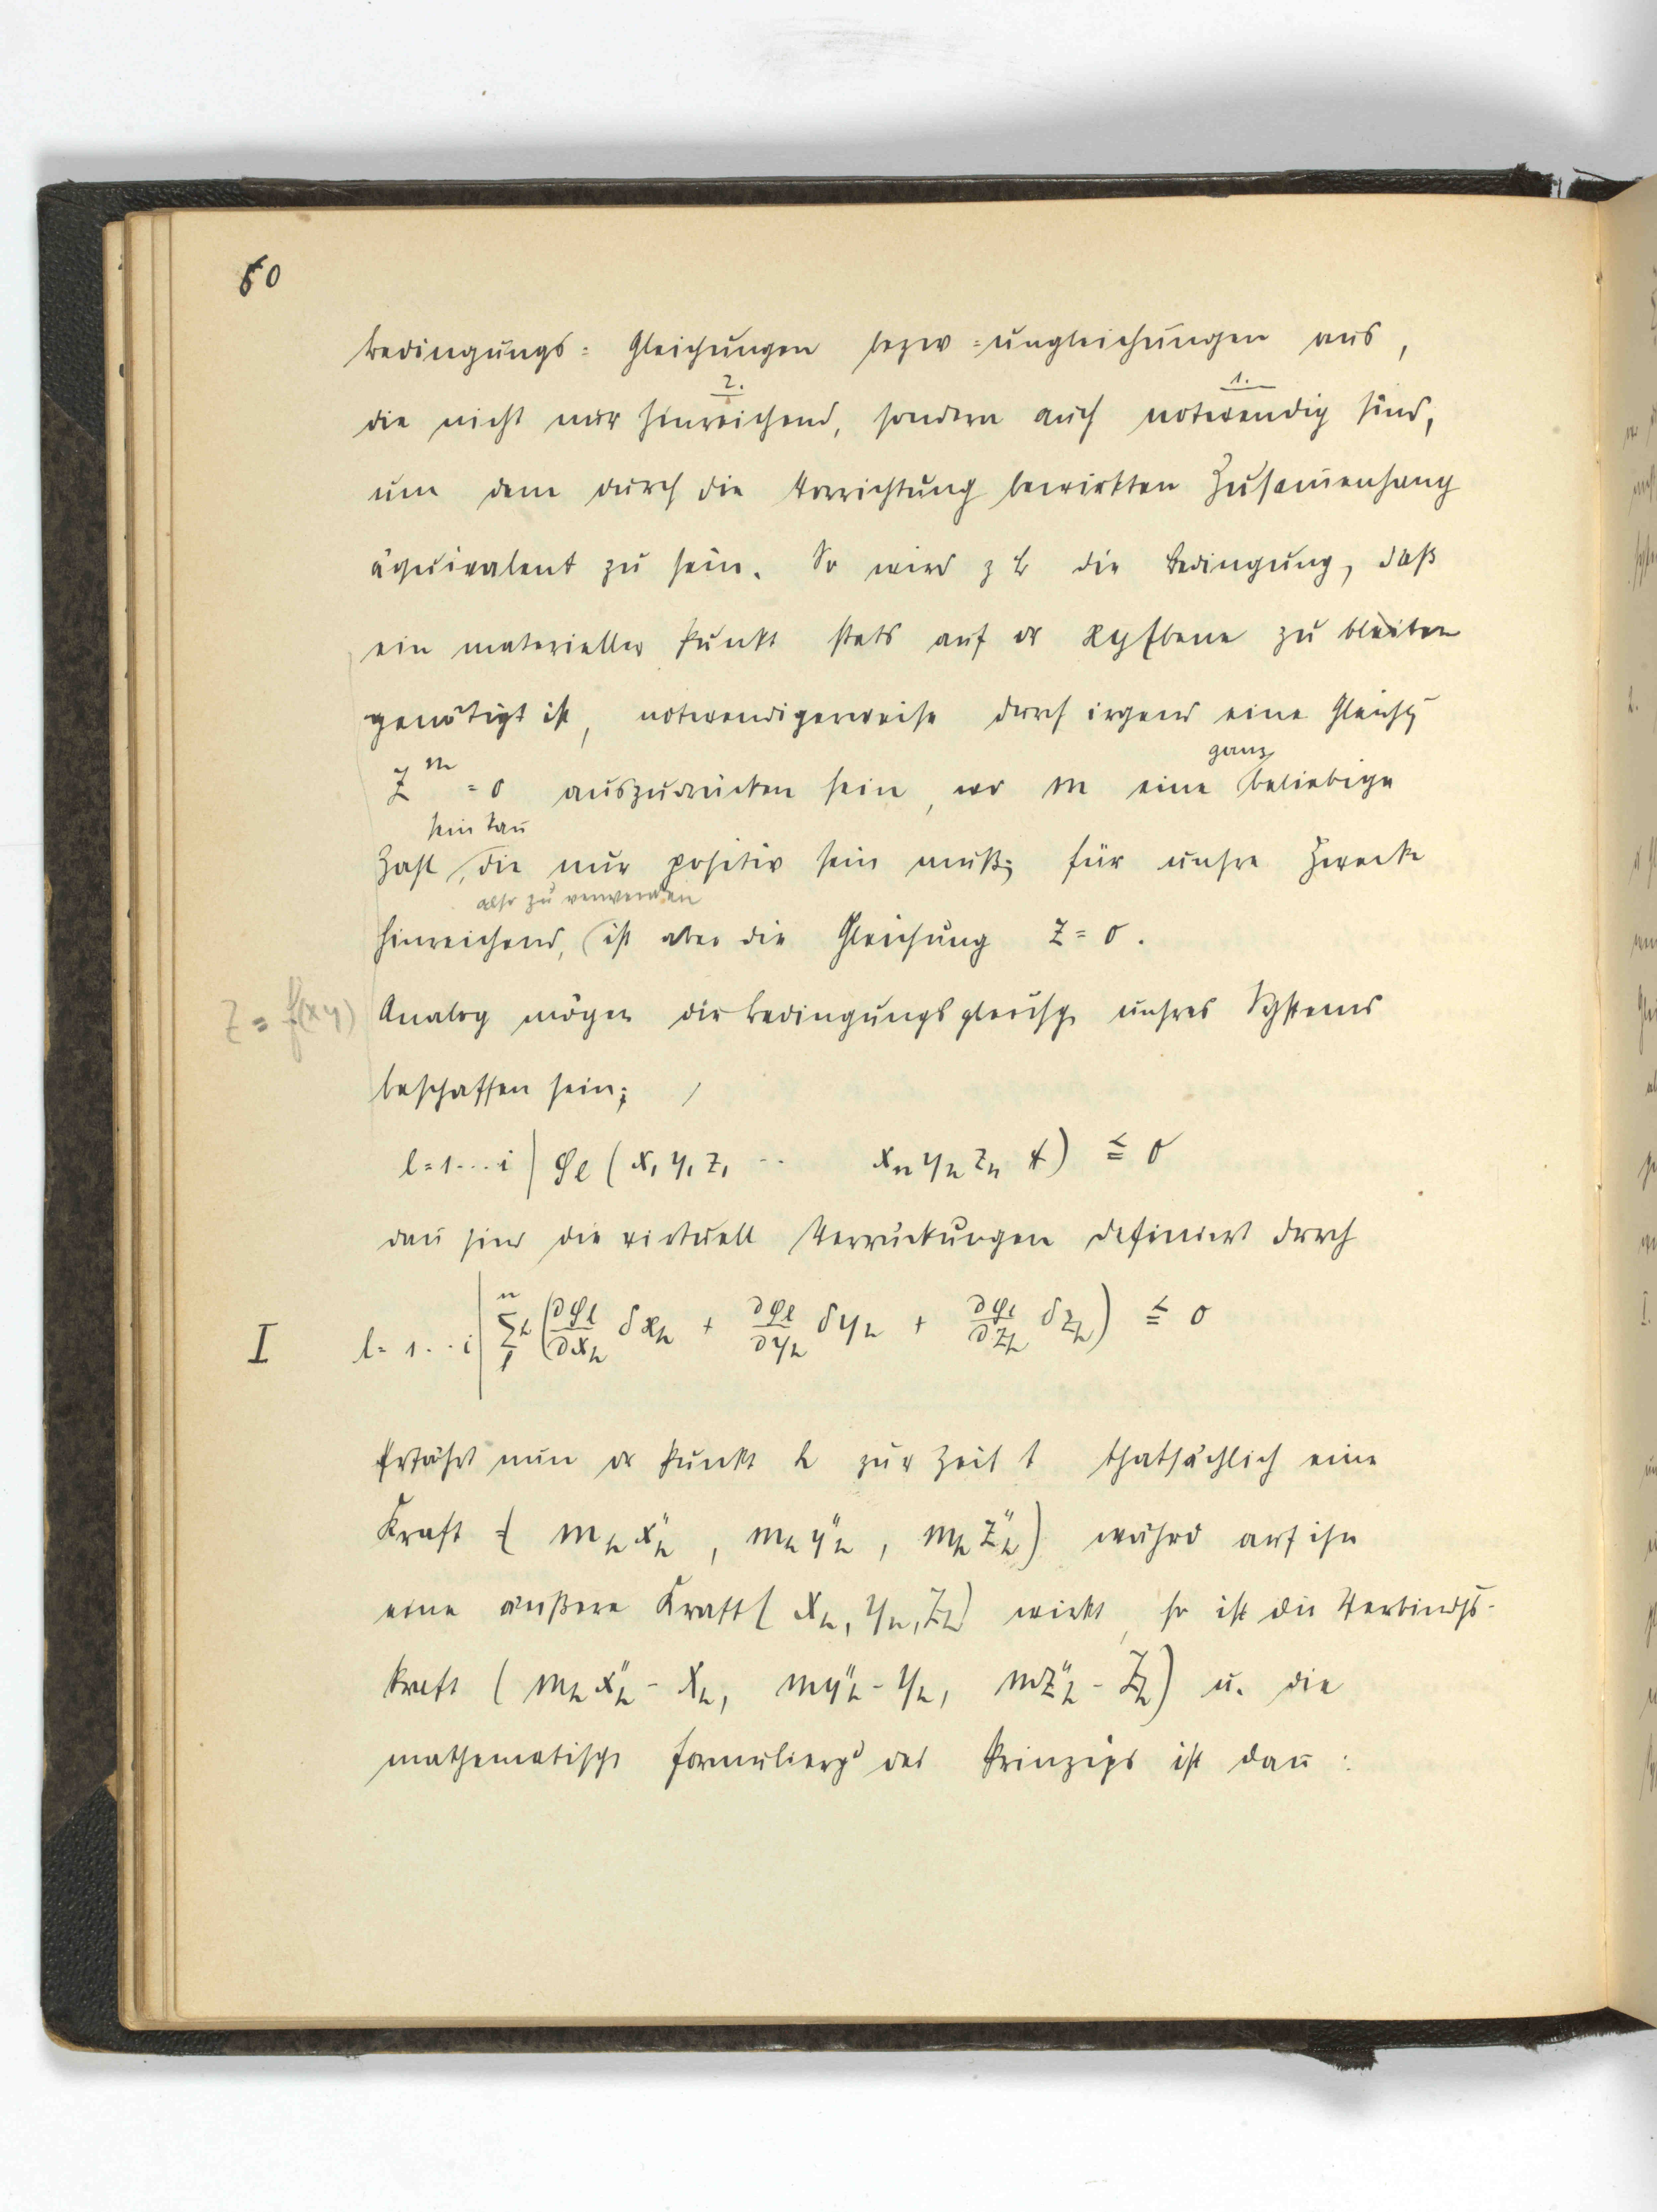 60
Bedingungs= Gleichungen bezw =ungleichungen aus,
2. 1.
die nicht nur hinreichend, sondern auch notwendig sind,
um dem durch die Vorrichtung bewirkten Zusam̄enhang
äquivalent zu sein. So wird z B die Bedingung, daß
ein materieller Punkt stets auf dr xy Ebene zu bleiben
genötigt ist, notwendigerweise durch irgend eine Gleichg
ganz
z^m = 0 auszudrücken sein, wo m eine beliebige
sein kan̄
Zahl, die nur positiv sein muß; für unsre Zwecke
also zu verwenden
hinreichend, ist aber die Gleichung z = 0.
z = f(xy)
Analog mögen die Bedingungsgleichg unsres Systems
beschaffen sein;
l=1...i | φ_l (x₁ y₁ z₁ ... x_n y_n z_n t) ≦ 0
dan̄ sind die virtuell Verrückungen definiert durch
I l = 1...i | Σ_1^n h (∂φ_l/∂x_h δx_h + ∂φ_l/∂y_h δy_h + ∂φ_l/∂z_h δz_h) ≦ 0
Erfährt nun dr Punkt h zur Zeit t thatsächlich eine
Kraft = (m_h x̎_h, m_h y̎_h, m_h z̎_h) währd auf ihn
eine äußere Kraft (X_h, Y_h, Z_h) wirkt, so ist die Verbindgs-
kraft (m_h x̎_h - X_h, m y̎_h - Y_h, m z̎_h - Z_h) u. die
mathematische Formulierg des Prinzips ist dan̄ :